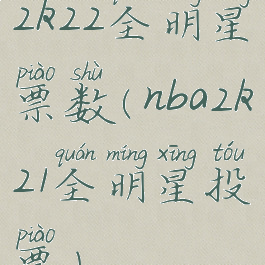 2k22全明星
piào shù
票数(nba2k
quán míng xīng tóu
21全明星投
piào
票)